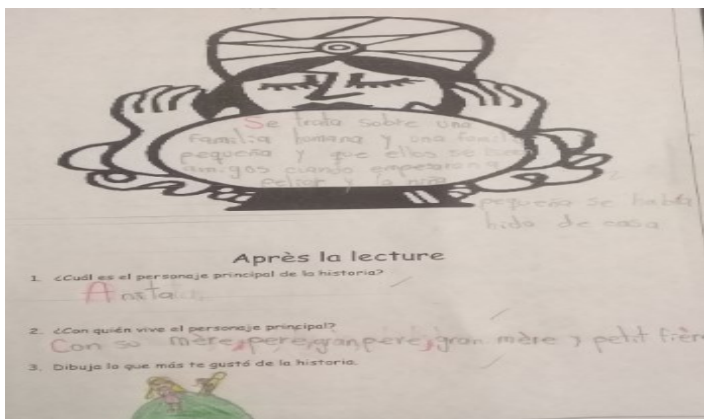 Se trata sobre una
familia humana y una familia
pequeña y que ellos se
amigos cuando empesaron a
pelear y la niña
pequeña se había
hido de casa
Après la lecture
1. ¿Cuál es el personaje principal de la historia?
Anita
2. ¿Con quién vive el personaje principal?
Con su mère, pere, gran pere, gran mère y petit frèr
3. Dibuja lo que más te gustó de la historia.